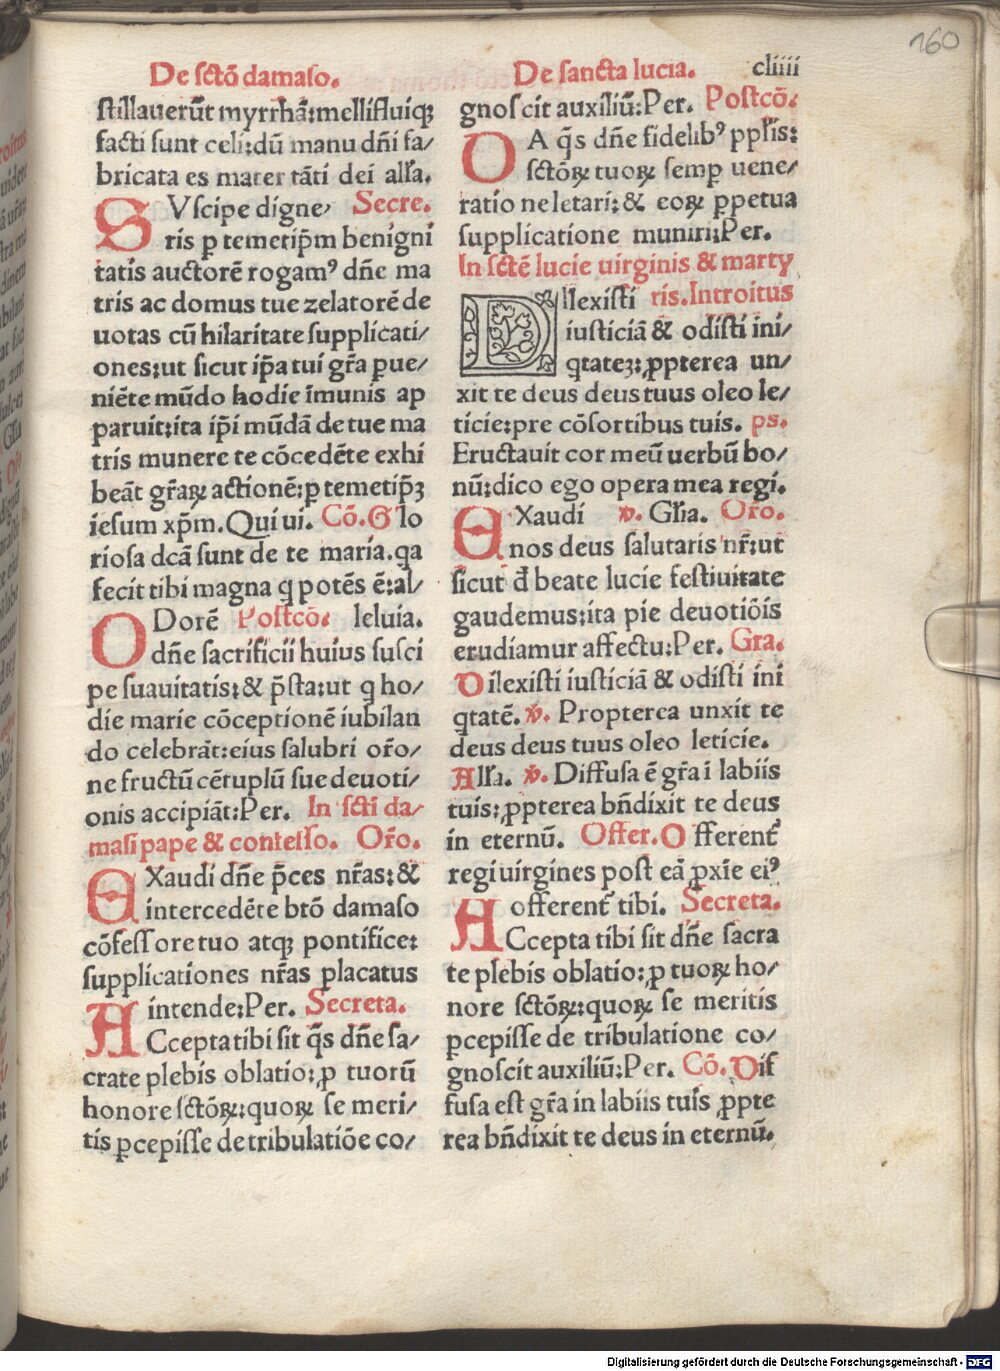 160
De sctō damaso.
stillauerūt myrrhā:mellifluiq;
facti sunt celi:dū manu dñi fa/
bricata es mater tāti dei alľa.
SVscipe digne, Secre.
ris ꝑ temetip̄m benigni
tatis auctorē rogamꝰ dñe ma
tris ac domus tue zelatorē de
uotas cū hilaritate supplicati/
ones:ut sicut ip̄a tui gr̄a pue/
niēte mūdo hodie īmunis ap
paruit:ita ip̄i mūdā de tue ma
tris munere te cōcedēte exhi
beāt gr̄aꝝ actionē:ꝑ temetip̄ꝫ
iesum xp̄m.Qui ui. Cō.Glo
riosa dcā sunt de te maria.qa
fecit tibi magna q potēs ē:al/
ODorē Postcō. leluia.
dñe sacrificii huius susci
pe suauitatis:& p̄sta:ut q ho/
die marie cōceptionē iubilan
do celebrāt:eius salubri or̄o/
ne fructū cētuplū sue deuoti/
onis accipiāt:Per. In scti da/
masi pape & confesso. Or̄o.
EXaudi dñe p̄ces nr̄as:&
intercedēte btō damaso
cōfessore tuo atq; pontifice:
supplicationes nr̄as placatus
intende:Per. Secreta.
ACcepta tibi sit q̄s dñe sa/
crate plebis oblatio:ꝓ tuorū
honore sctōꝝ:quoꝝ se meri/
tis ꝑcepisse de tribulatiōe co/
De sancta lucia. cliiii
gnoscit auxiliū:Per. Postcō.
DA q̄s dñe fidelibꝰ ppľis:
sctōꝝ tuoꝝ semꝑ uene/
ratione letari:& eoꝝ ꝑpetua
supplicatione muniri:Per.
In sctē lucie uirginis & marty
DIlexisti ris.Introitus
iusticiā & odisti ini/
qtateꝫ:ꝓpterea un/
xit te deus deus tuus oleo le/
ticie:pre cōsortibus tuis. ps.
Eructauit cor meū uerbū bo/
nū:dico ego opera mea regi.
EXaudi ꝟ. Glia. Or̄o.
nos deus salutaris nr̄:ut
sicut đ beate lucie festiuitate
gaudemus:ita pie deuotiōis
erudiamur affectu:Per. Gra.
Dilexisti iusticiā & odisti ini
qtatē. ꝟ. Propterea unxit te
deus deus tuus oleo leticie.
Alľa. ꝟ. Diffusa ē gr̄a i labiis
tuis:ꝓpterea bñdixit te deus
in eternū. Offer.Offerent̄
regi uirgines post eā ꝓxīe eiꝰ
offerent̄ tibi. Secreta.
ACcepta tibi sit dñe sacra
te plebis oblatio:ꝓ tuoꝝ ho/
nore sctōꝝ:quoꝝ se meritis
ꝑcepisse de tribulatione co/
gnoscit auxiliū:Per. Cō.Dif
fusa est gr̄a in labiis tuis ꝓpte
rea bñdixit te deus in eternū.
Digitalisierung gefördert durch die Deutsche Forschungsgemeinschaft - DFG